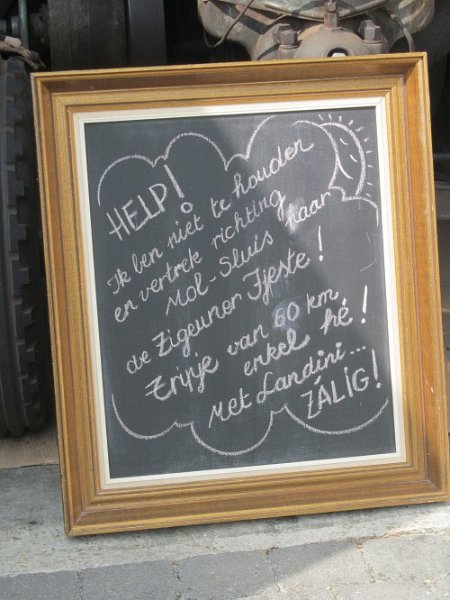 HELP!
Ik ben niet te houden
en vertrek richting
Mol-Sluis naar
de Zigeuner Tjeste!
Tripje van 60 km
enkel hé!
Met Landini...
ZÁLIG!